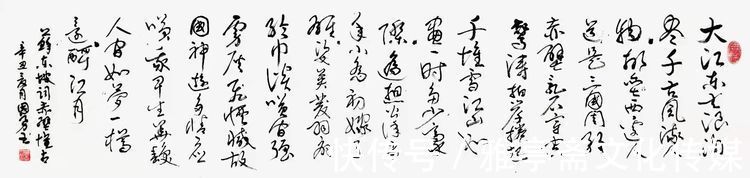 大江东去浪淘
尽千古风流人
物故垒西边人
道是三国周郎
赤壁乱石穿空
惊涛拍岸卷起
千堆雪江山如
画一时多少豪
杰遥想公瑾当
年小乔初嫁了
雄姿英发羽扇
纶巾谈笑间强
虏灰飞烟灭故
国神游多情应
笑我早生华发
人间如梦一樽
还酹江月
苏东坡词赤壁怀古
辛丑
快传号／雅亭斋文化传媒